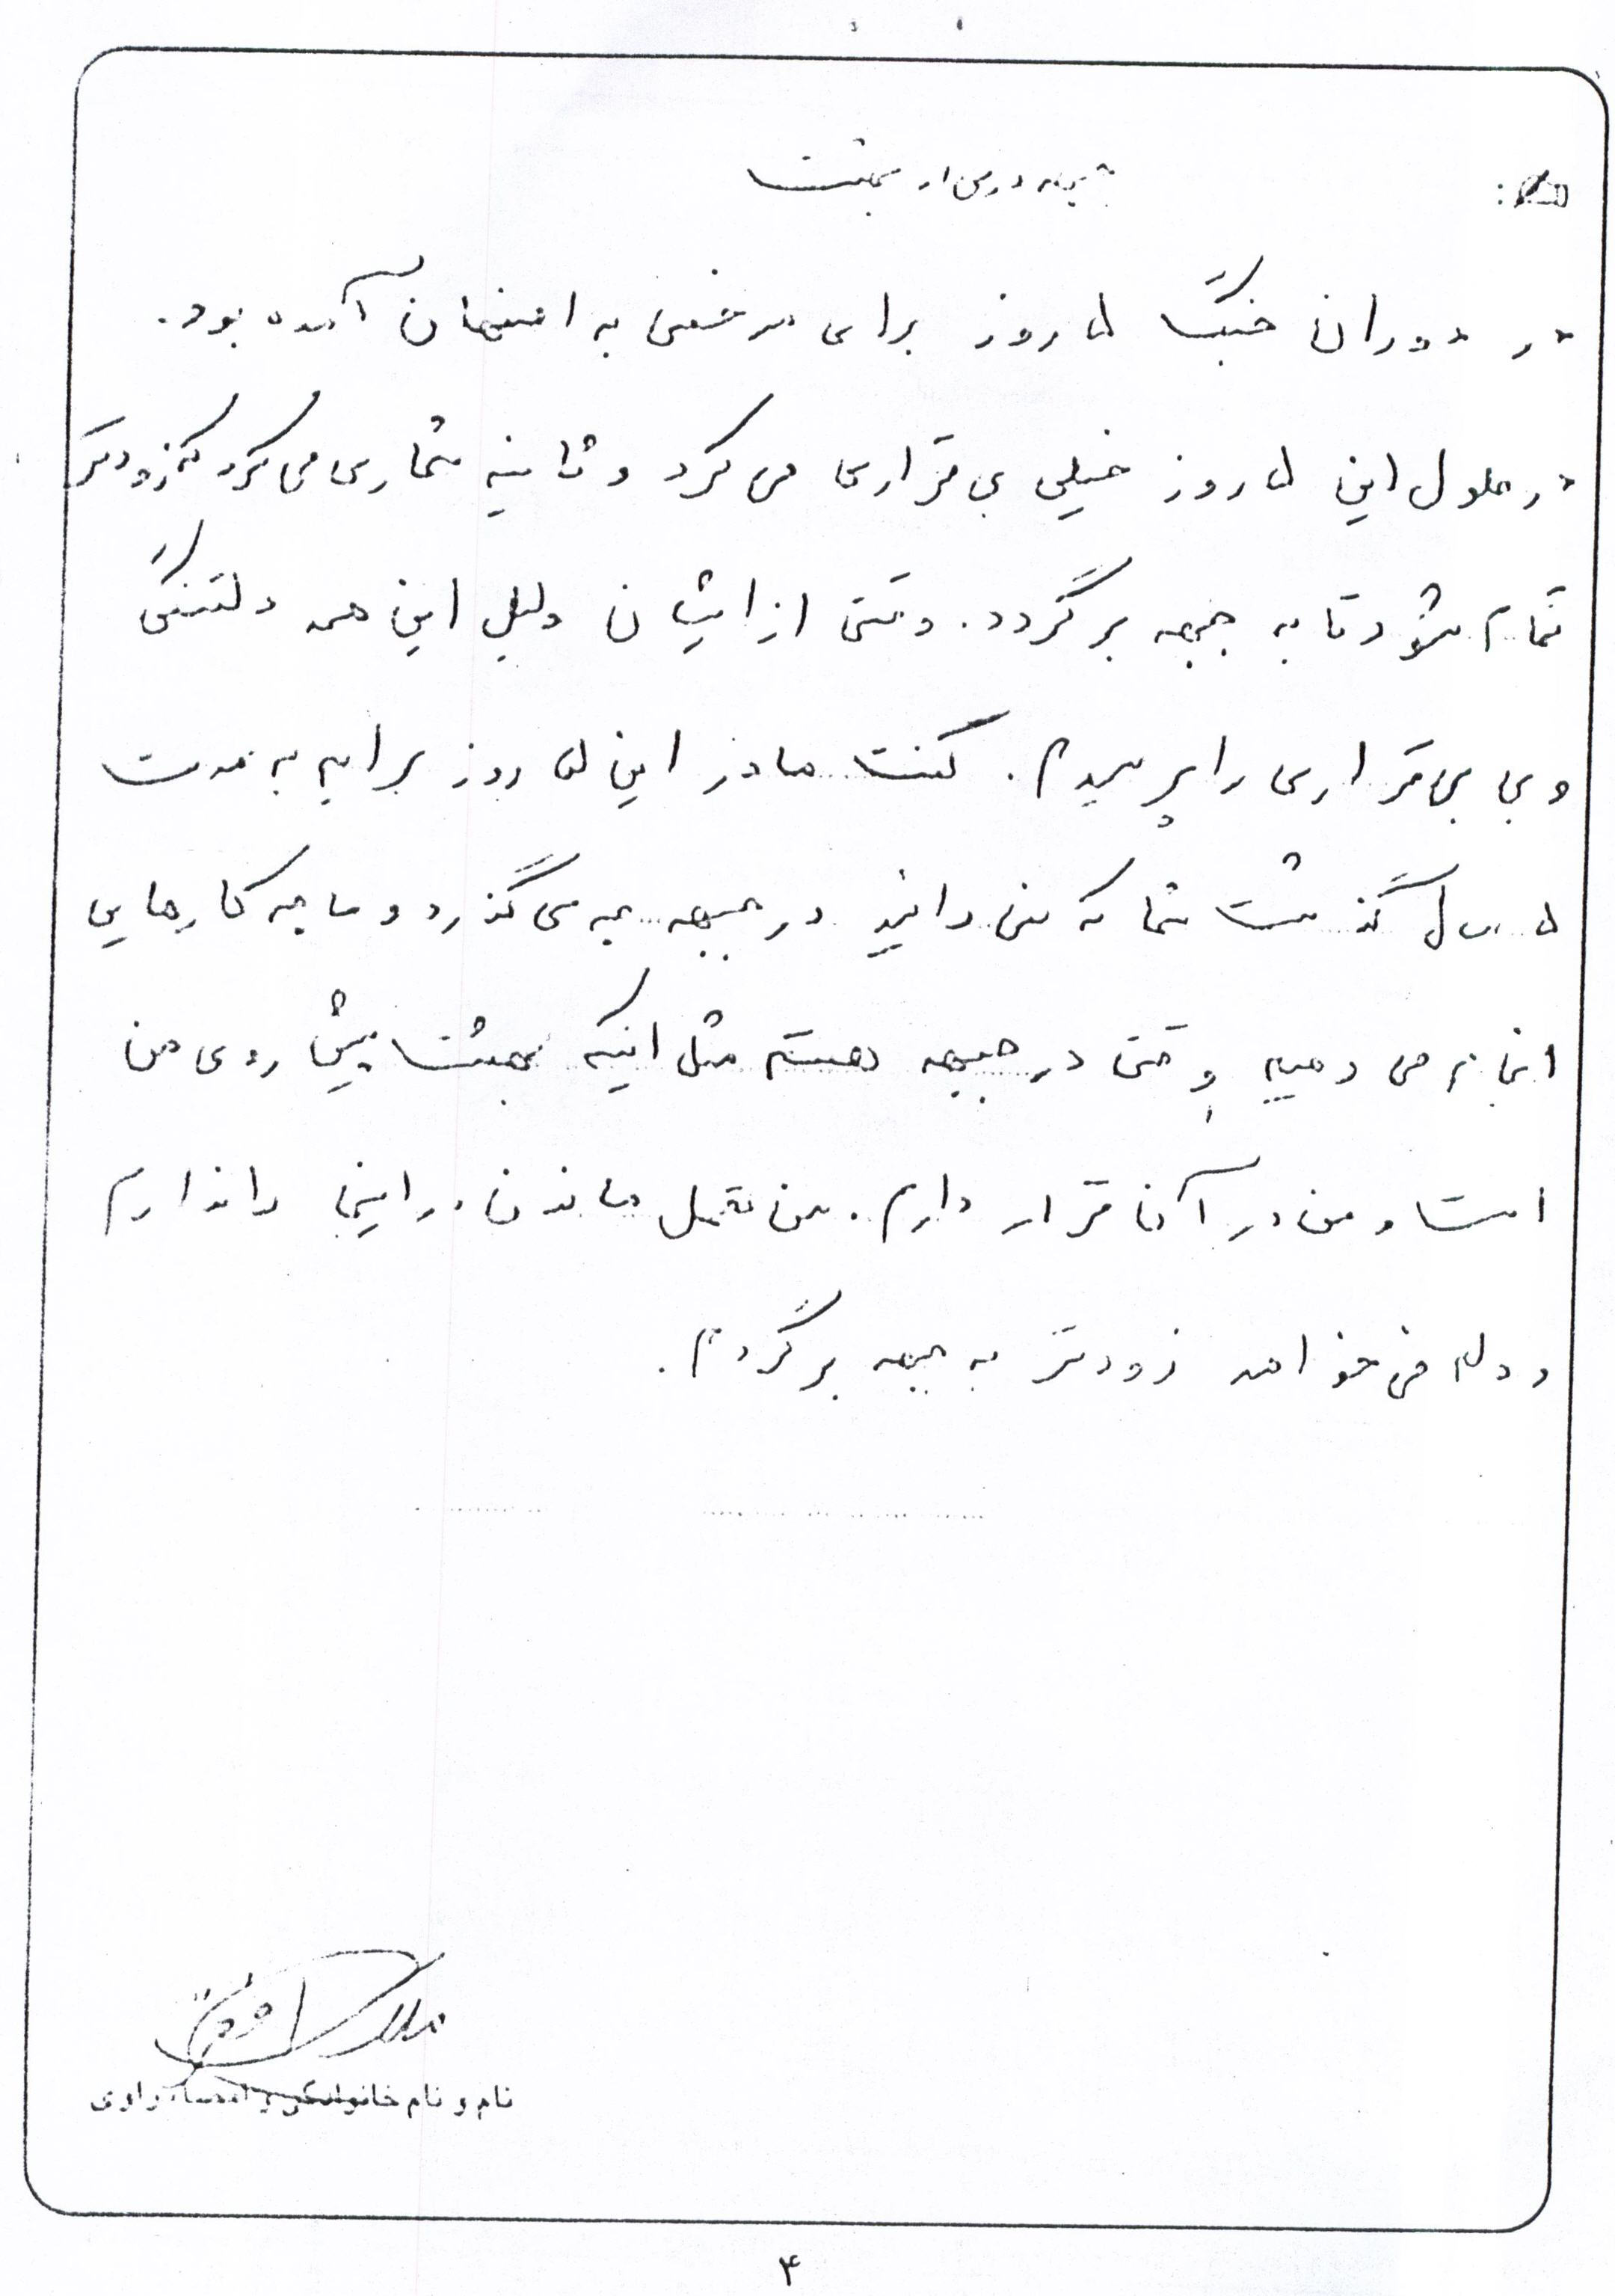 جبهه دری از بهشت
در دوران جنگ ۵ روز برای مرخصی به اصفهان آمده بود.
در طول این ۵ روز خیلی بی قراری می کرد و ثانیه شماری می کرد که زودتر
تمام شود تا به جبهه برگردد. وقتی از ایشان دلیل این همه دلتنگی
و بی قراری را پرسیدم. گفت مادر این ۵ روز برایم به مدت
۵ سال گذشت شما که نمی دانید در جبهه چه می گذرد و ما چه کارهایی
انجام می دهیم وقتی در جبهه هستم مثل اینکه بهشت پیش روی من
است و من در آن قرار دارم. من تحمل ماندن در اینجا را ندارم
و دلم می خواهد زودتر به جبهه برگردم.
نام و نام خانوادگی و امضاء راوی
۴